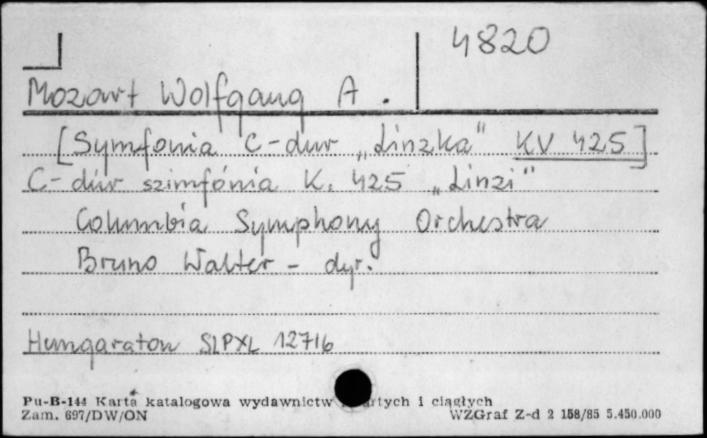 4820
Mozart Wolfgang A.
[Symfonia C-dur „Linzka" KV 425]
C-dúr szimfónia K. 425 „Linzi"
Columbia Symphony Orchestra
Bruno Walter - dyr.
Hungaraton SLPXL 12716
Pu-B-144 Karta katalogowa wydawnictw i ciągłych
Zam. 697/DW/ON WZGraf Z-d 2 158/85 5.450.000